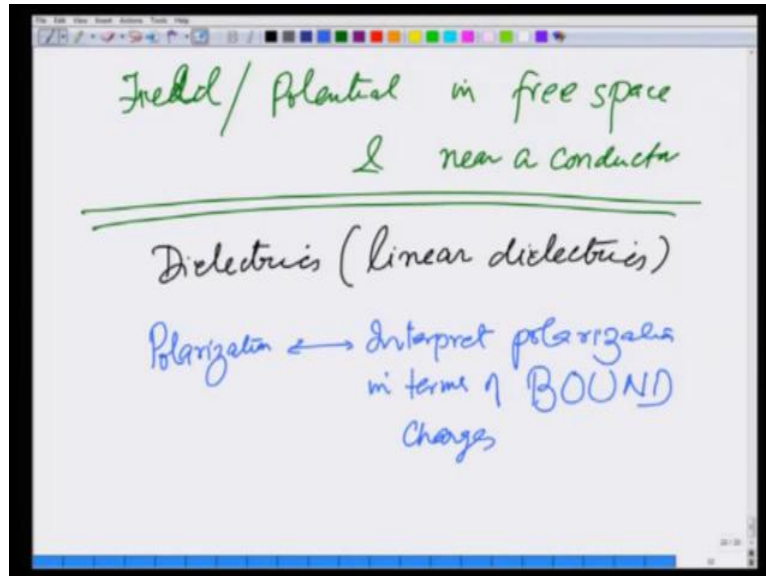 File Edit View Insert Actions Tools Help
Field / Potential in free space
& near a conductor
Dielectrics (linear dielectrics)
Polarization ⟷ Interpret polarization
in terms of BOUND
Charges